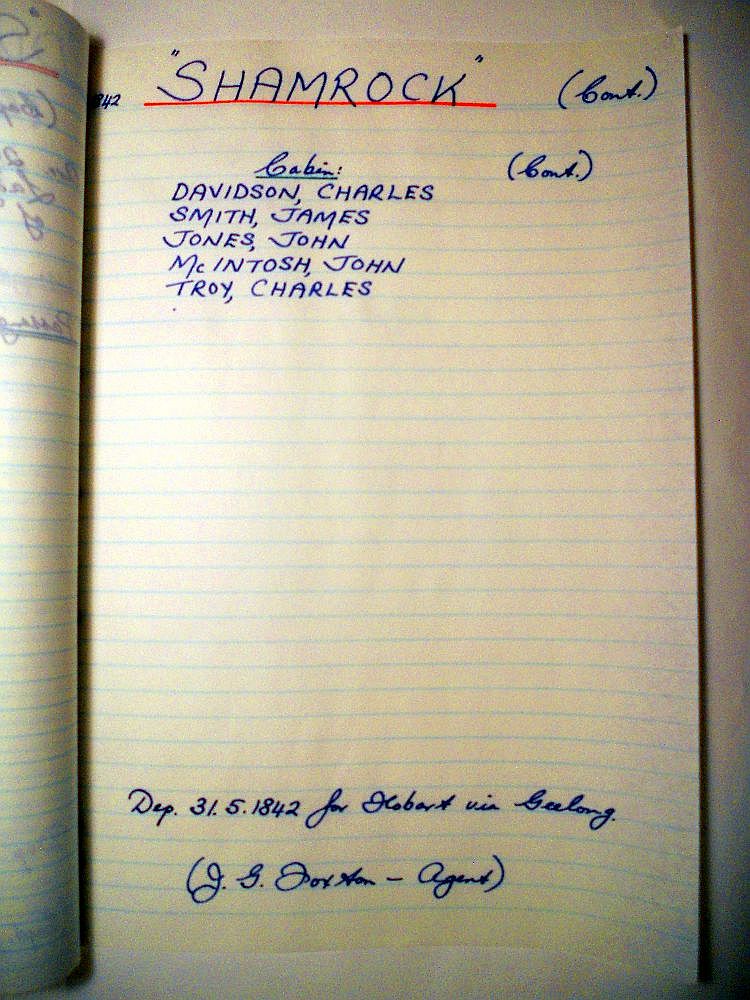 842 "SHAMROCK" (Cont.)
Cabin: (Cont.)
DAVIDSON, CHARLES
SMITH, JAMES
JONES, JOHN
Mc INTOSH, JOHN
TROY, CHARLES
Dep. 31.5.1842 for Hobart via Geelong.
(J. G. Foxton - Agent)